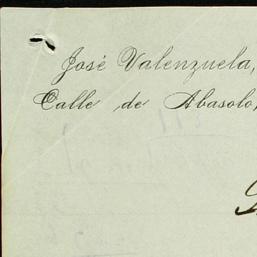 José Valenzuela,
Calle de Abasolo,